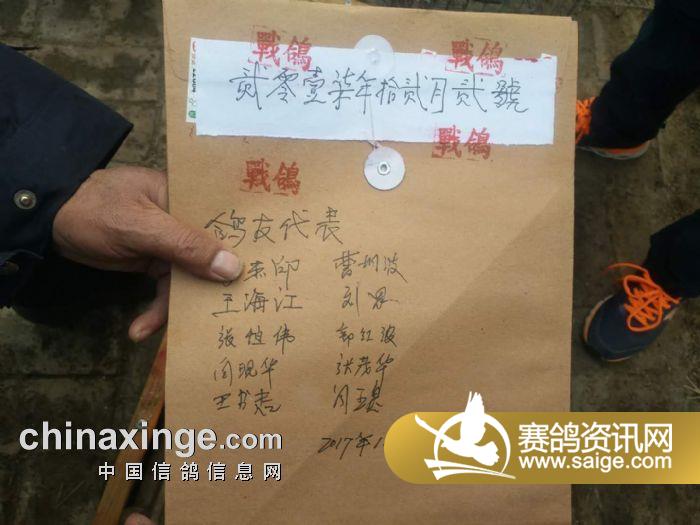 戰鴿 戰鴿
贰零壹柒年拾贰月贰號
戰鴿
戰鴿
鸽友代表
印
王海江 刘
张 伟 郭红波
闫现华 张茂华
王书君 闫玉
2017年1
chinaxinge.com
中国信鸽信息网
赛鸽资讯网
www.saige.com